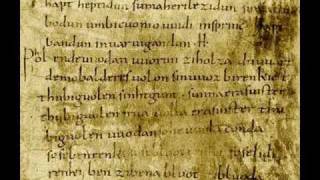 hapt heptidun sumaherilezidun suma
bodun umbicuonio uuidi insprinc hapt
bandun inuar uigandun· H·
Phol endeuuodan uuorun ziholza du uuart
demobalderes uolon sinuuoz birenkict
thubiguolen sinhtgunt · sunnaerasuister
thubiguolen friia uolla erasuister thu
biguolen uuodan uuolaconda
sosebenrenki soselidi
renki ben zibena bluot zibluoda